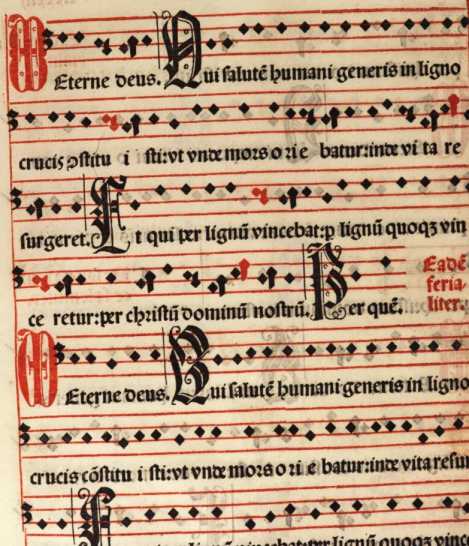 Eterne deus. Qui salutē humani generis in ligno
crucis ꝯstitu i sti:vt vnde mors o ri e batur:inde vi ta re
surgeret. Et qui per lignū vincebat:ꝑ lignū quoqꝫ vin
ce retur:per christū dominū nostrū. Per quē. Eadē
feria-
liter.
Eterne deus. Qui salutē humani generis in ligno
crucis cōstitu i sti:vt vnde mors o ri e batur:inde vita resur
lignū quoqꝫ vince